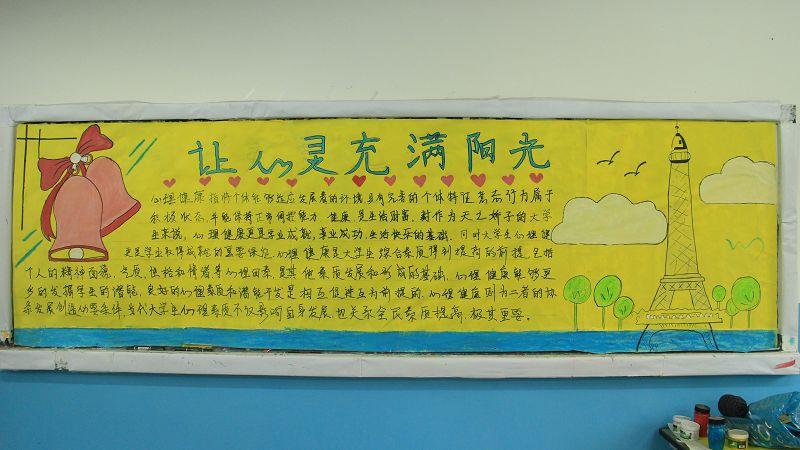 让心灵充满阳光
心理健康指将个体能够适应发展着的环境,具有完善的个体特征其态行为属于
积极状态,并能保持正常调控能力.健康是生活财富,对作为天之骄子的大学
生来说,心理健康更是学业成就,事业成功,生活快乐的基础.同时大学生心理健康
更是学生取得成就的重要保证.心理健康是大学生综合素质得到提高的前提,包括
个人的精神面貌,气质,性格和情绪等心理因素,是其他素质发展和形成的基础.心理健康能够更
多的发挥学生的潜能,良好的心理素质和潜能开发是相互促进互为前提的,心理健康则为二者的协
条发展创造必要条件,当代大学生心理素质不仅影响自身发展,也关系全民素质提高,极其重要.